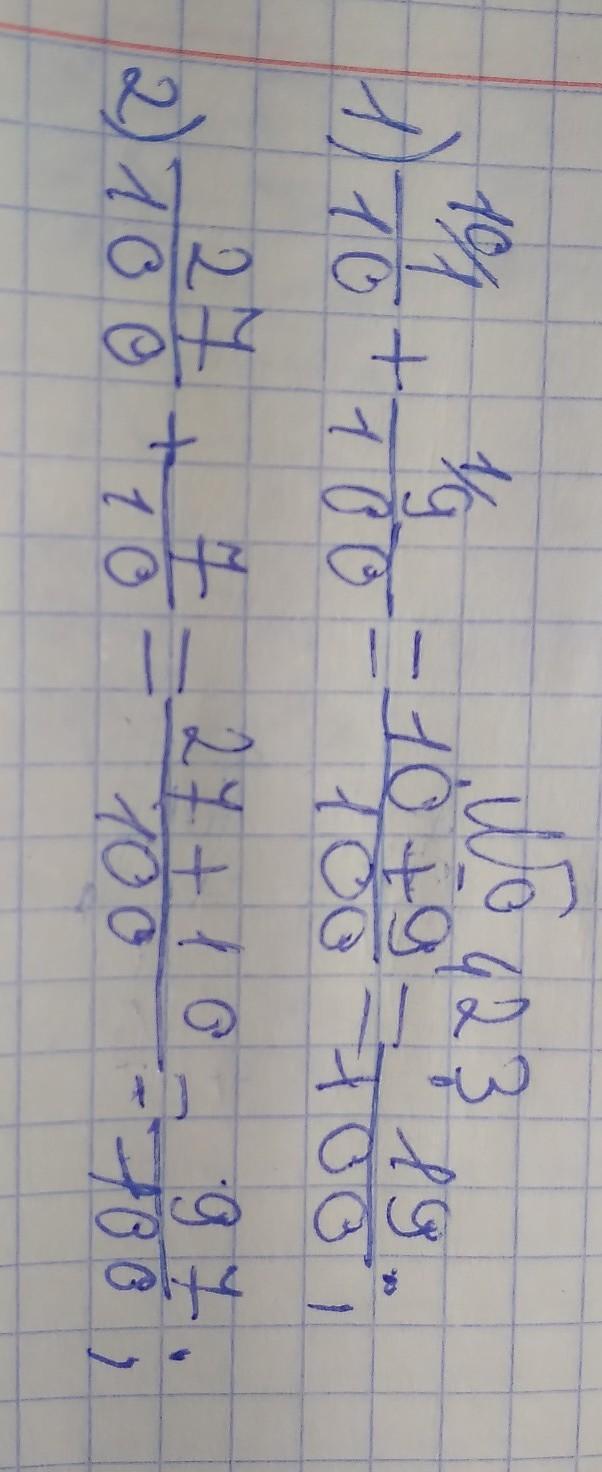 № 423
1) 10/ 1/10 + 1/ 9/100 = 10+9/100 = 19/100;
2) 27/100 + 7/10 = 27+10/100 = 97/100;